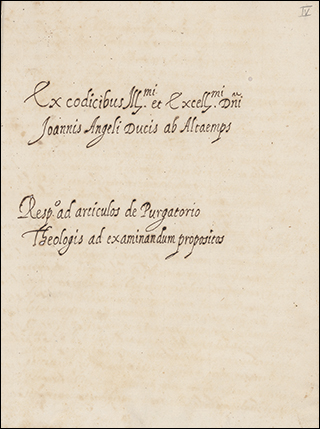 IV
Ex codicibus Ill.mi et Excell.mi Dñi
Joannis Angeli Ducis ab Altaemps
Resp.o ad articulos de Purgatorio
Theologis ad examinandum propositos